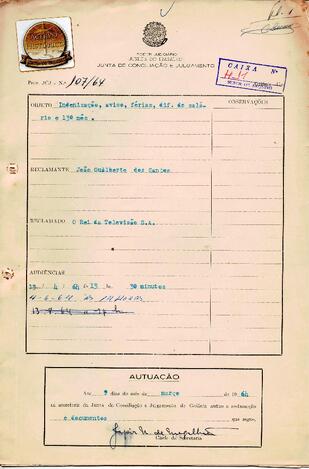 PODER JUDICIÁRIO
JUSTIÇA DO TRABALHO
JUNTA DE CONCILIAÇÃO E JULGAMENTO
Proc. JCJ - N.º 107/64
CAIXA Nº
OBJETO Indenização, aviso, férias, dif. de salá-
rio e 13º mês.
OBSERVAÇÕES
RECLAMANTE João Gualberto dos Santos
RECLAMADO O Rei da Televisão S.A.
AUDIÊNCIAS
13 / 4 / 64 às 13 h. 30 minutos
4-6-64 às 14 horas
AUTUAÇÃO
Aos 9 dias do mês de março de 1964
na secretaria da Junta de Conciliação e Julgamento de Goiânia autuo a reclamação
e documentos que segue.
Chefe de Secretaria